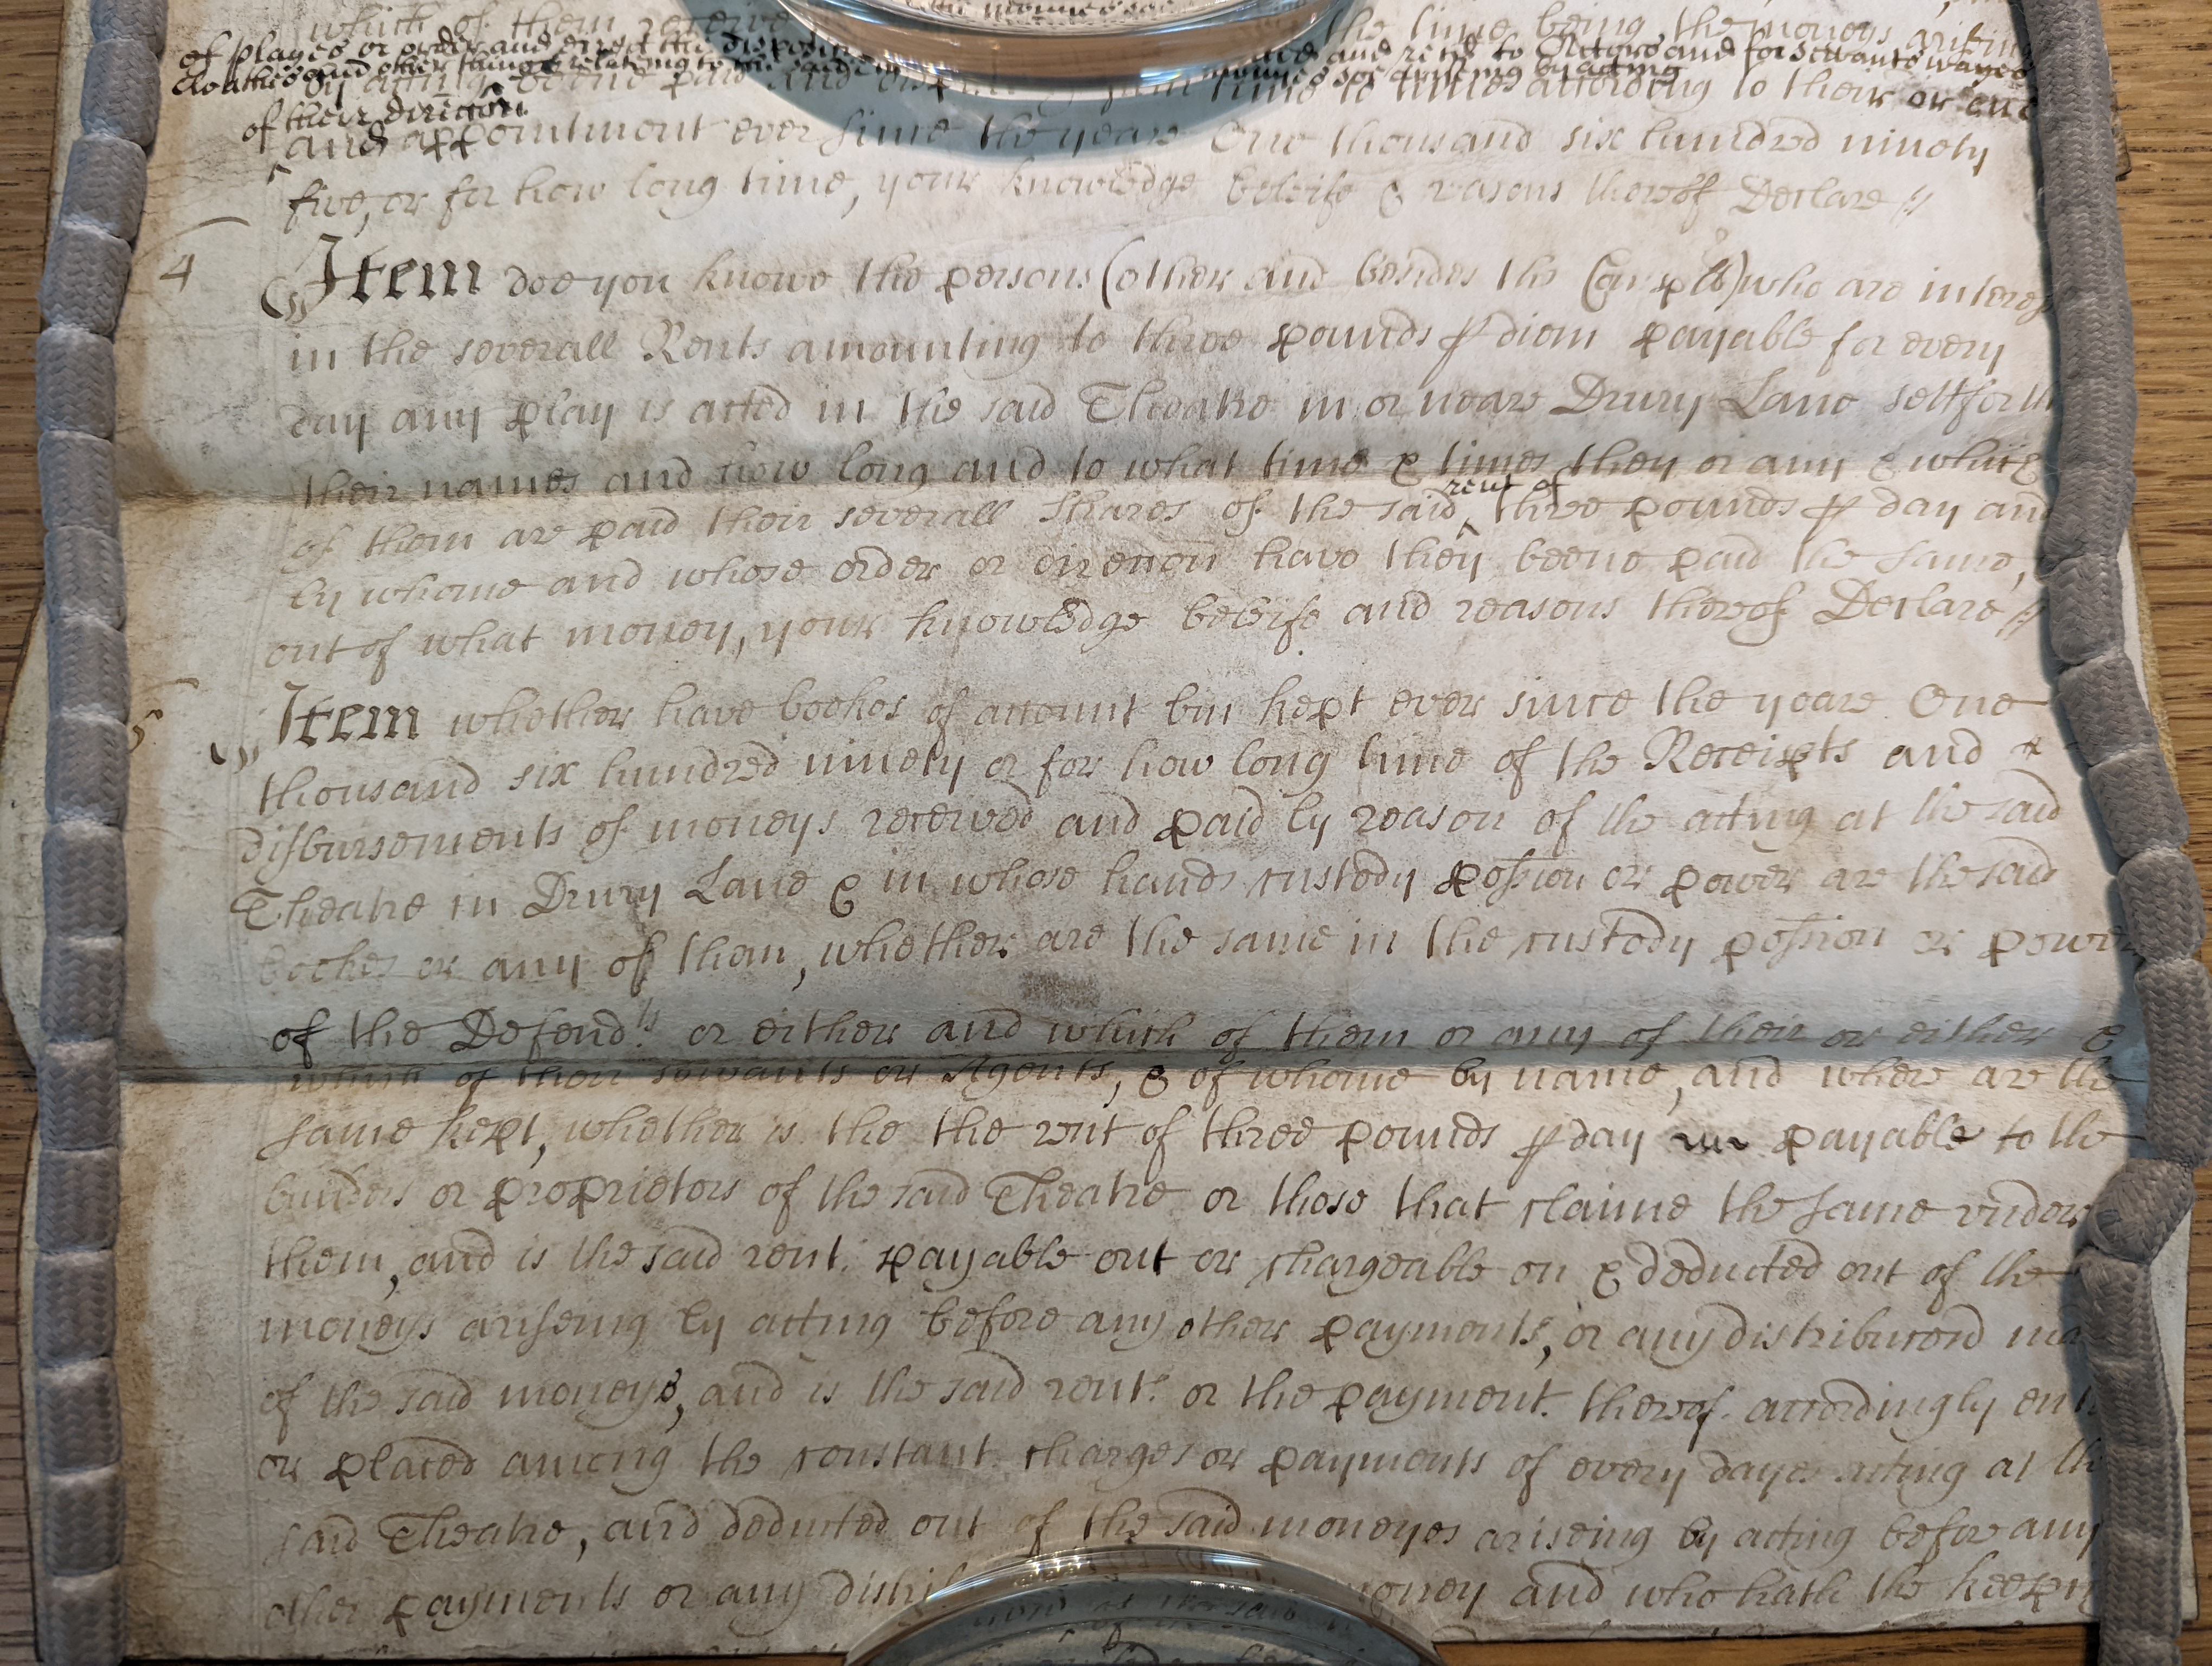 which of them receive the time being the moneys arising
of playes or order and direct the disposi and rent to Actors and for servants wages
Cloathes and other things relateing to the said moneys soe ariseing by acting
by acting beene paid and time to times according to their or
of their direccon
and appointment ever since the yeare One thousand six hundred ninety
five, or for how long time, your knowledge beleife & reasons thereof Declare
4
Item doe you knowe the persons (other and besides the Complts) who are interes
in the severall Rents amounting to three pounds p diem payable for every
day any play is acted in the said Theatre in or neare Drury Lane settforth
their names and how long and to what time & times they or any & which
rent of
of them are paid their severall shares of the said ^ three pounds p day and
by whome and whose order or direccon have they beene paid the same,
out of what money, your knowledge beleife and reasons thereof Declare
5
Item whether have bookes of account bin kept ever since the yeare One
thousand six hundred ninety or for how long time of the Receipts and
disbursements of moneys received and paid by reason of the acting at the said
Theatre in Drury Lane & in whose hands custody possion or power are the said
bookes or any of them, whether are the same in the custody possion or power
of the Defendts or either and which of them or any of their or either &
which of their servants or Agents, & of whome by name, and where are the
same kept, whether is the the rent of three pounds p day payable to the
builders or proprietors of the said Theatre or those that claime the same under
them, and is the said rent payable out or chargeable on & deducted out of the
moneys ariseing by acting before any other payments, or any distribucon ma
of the said moneys, and is the said rent or the payment thereof accordingly ent
or placed among the constant charges or payments of every dayes acting at the
said Theatre, and deducted out of the said moneyes ariseing by acting before any
other payments or any distrib money and who hath the keeping